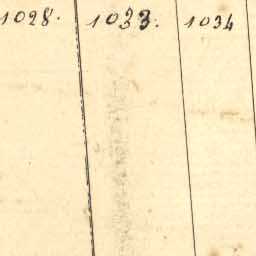 1028. 1033. 1034